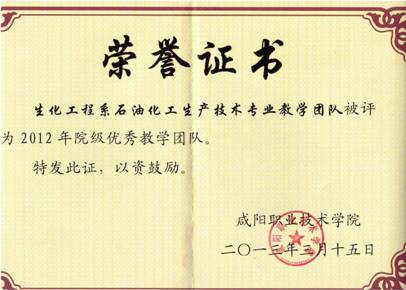 荣誉证书
生化工程系石油化工生产技术专业教学团队被评
为2012年院级优秀教学团队。
特发此证，以资鼓励。
咸阳职业技术学院
二〇一三年三月十五日